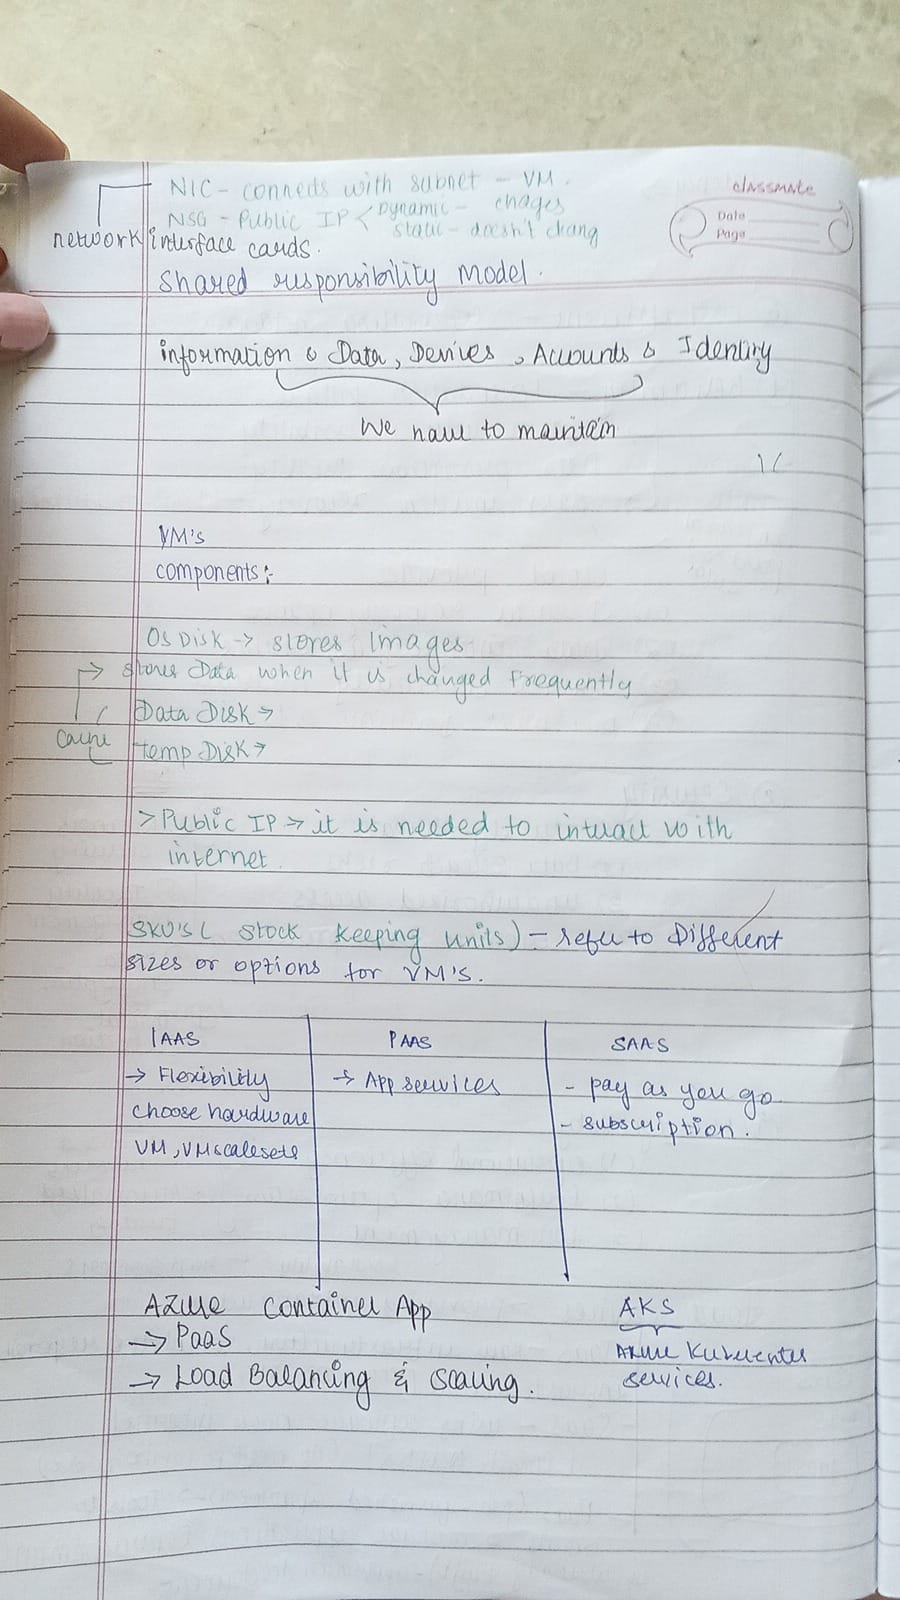 NIC - connects with subnet - VM.
classmate
Date
Page
NSG - Public IP < Dynamic - chages
static - doesn't chang
network interface cards.
Shared responsibility model.
information & Data, Devices, Accounts & Identity
We have to maintain
VM's
components:-
OS Disk -> stores images
-> stores Data when it is changed Frequently
Data Disk ->
cache
temp Disk ->
> Public IP -> it is needed to interact with
internet.
SKU's ( Stock keeping units) - refer to Different
sizes or options for VM's.
IAAS PAAS SAAS
-> Flexibility -> App services - pay as you go
choose hardware - subscription.
VM, VMscalesets
Azure Container App AKS
-> PaaS Azure
-> Load Balancing & scaling. services.